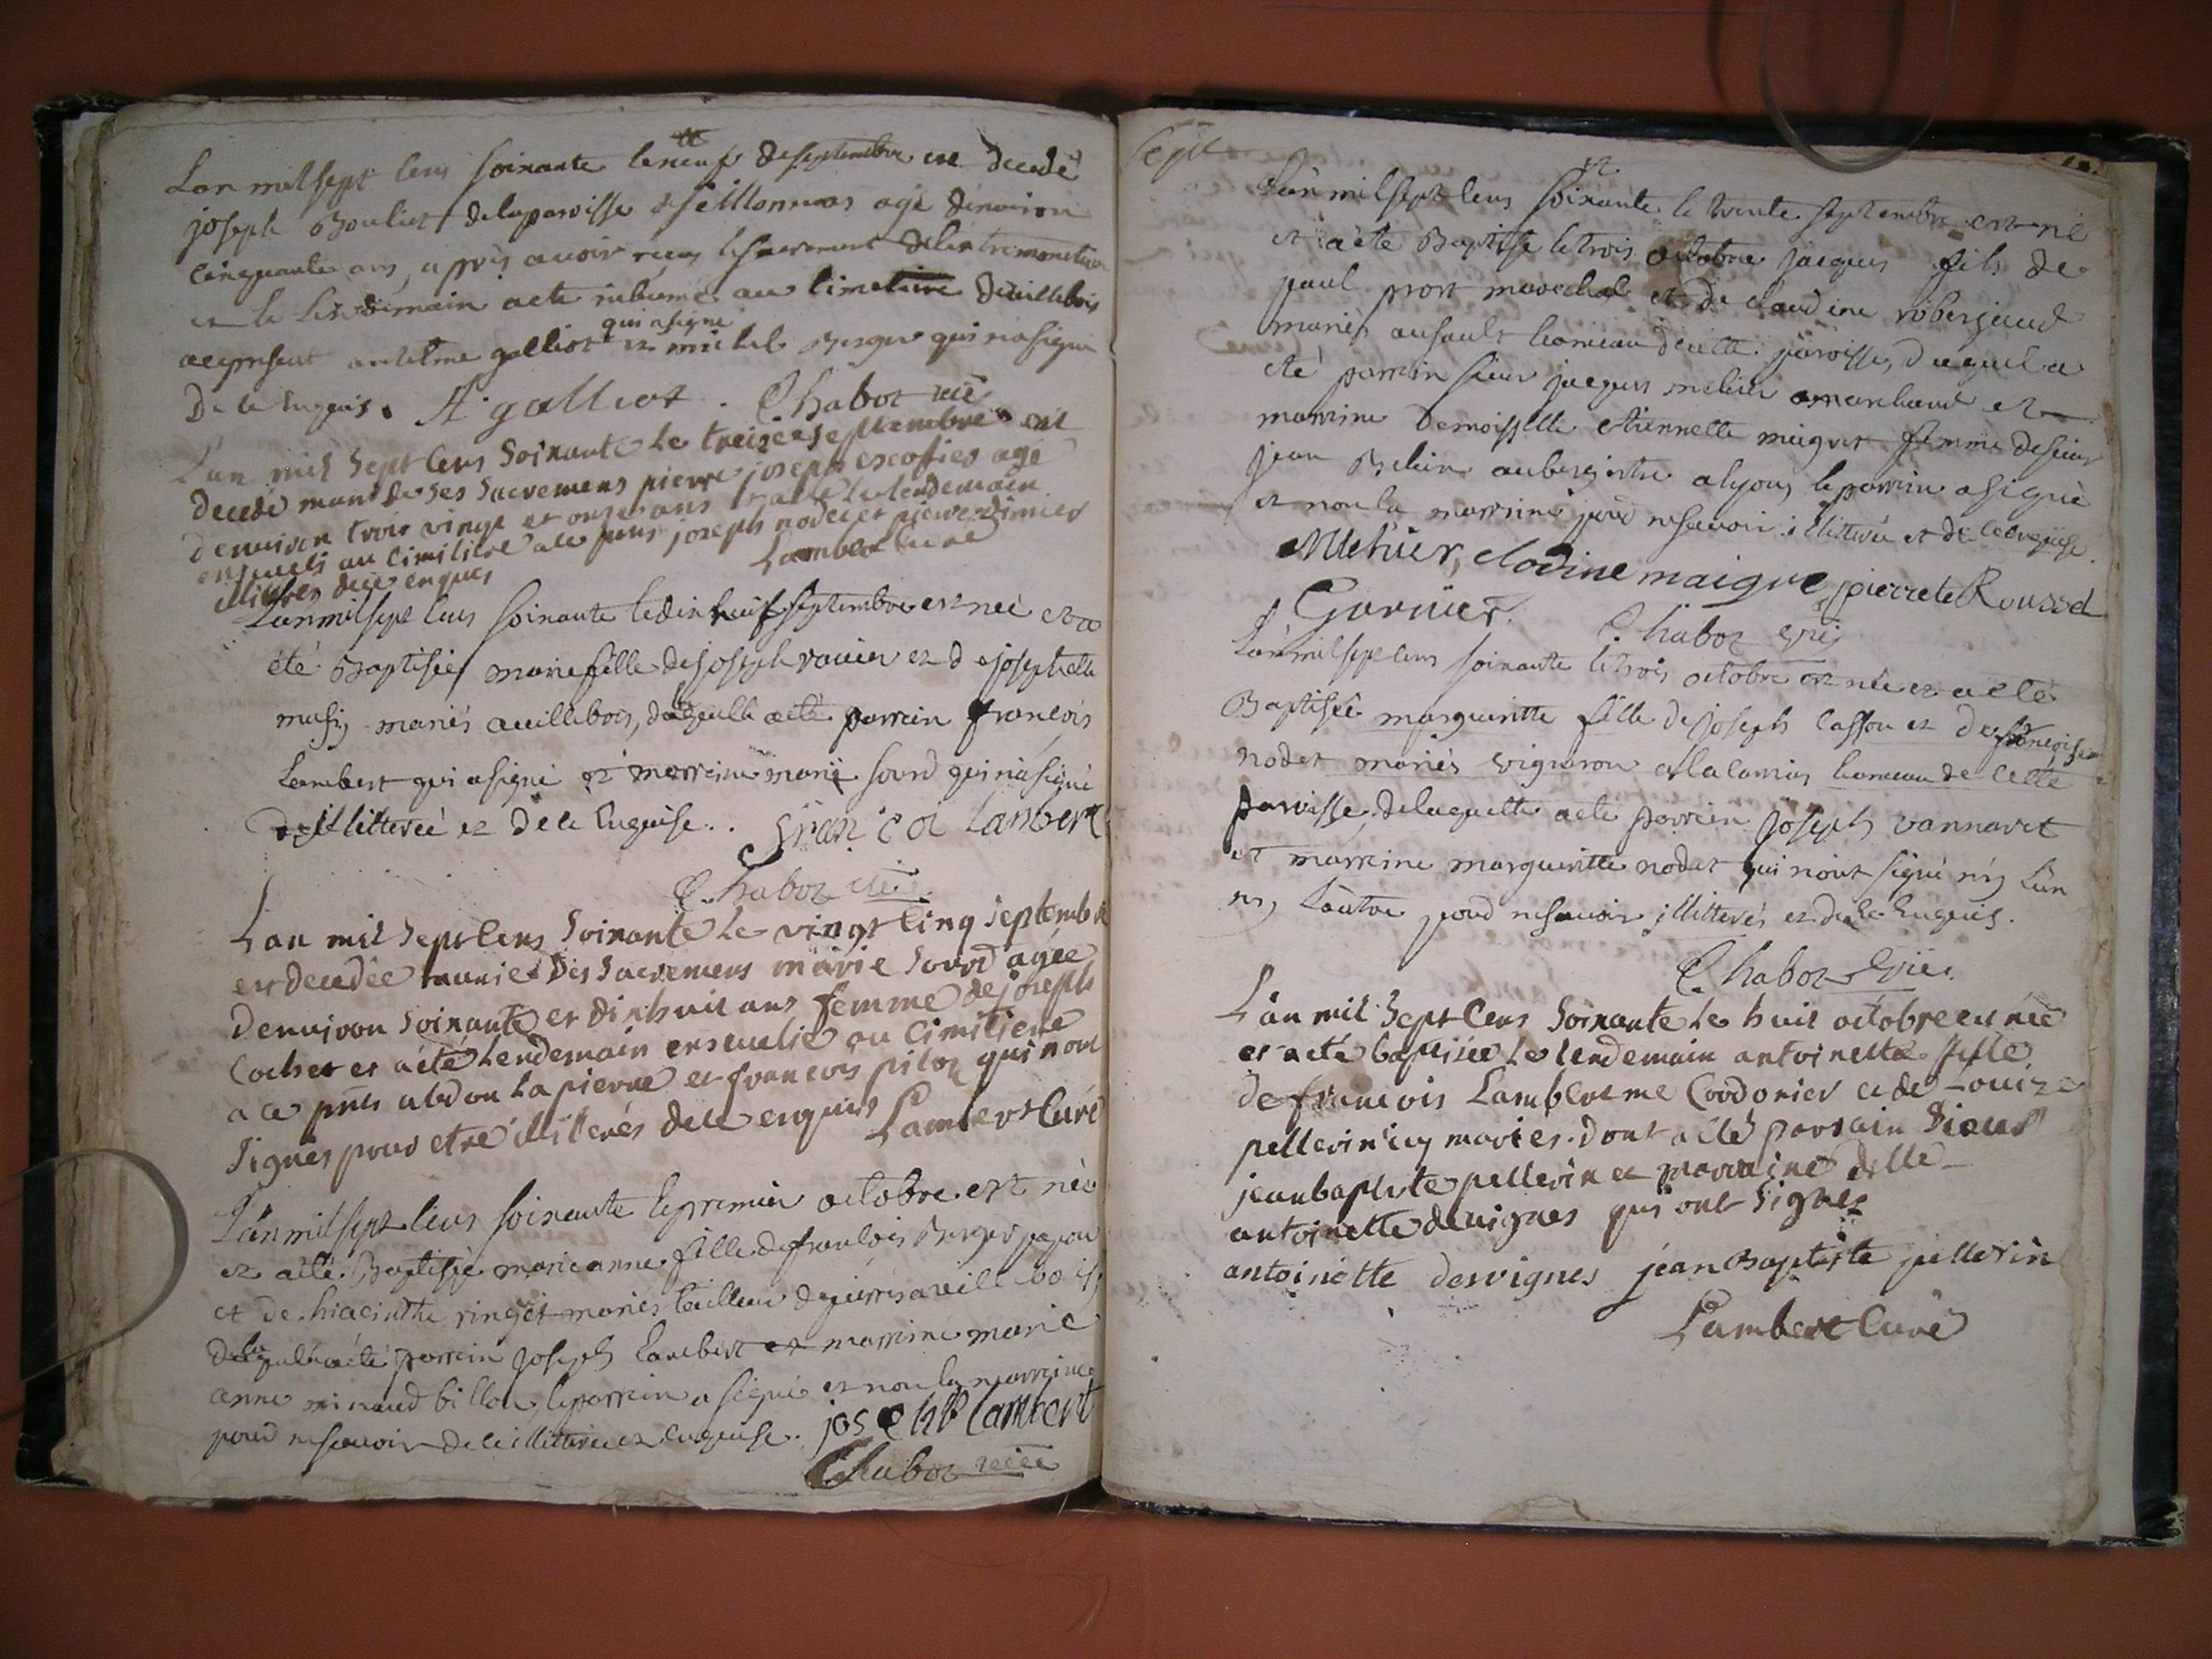 Lan mil sept cens soixante le neuf de septembre est decedé
joseph Bouliet de la paroisse de seillonnas agé d'environ
cinquante ans, après avoir reçu le sacrement de lextremonction
et le lendemain a eté inhumé au cimetiere de villebois
qui a signé
ace present antelme galliot et michel Berger qui n'a signé
De ce enquis. A galliot. Chabot vic
L'an mil Sept Cens Soixante Le treize septembre est
decedé muni de ses sacremens pierre joseph escofier agé
denviron trois vingt et onze ans et a eté Le lendemain
enseveli au cimitiere a ce pnts joseph nodet et pierre dimier
illitérés de ce enquis Lambert curé
L'an mil sept cens soixante le dix huit septembre est neé et a
été Baptisée marie fille de joseph vavier et de josephette
musy mariés a villebois, de laquelle a eté parrain françois
Lambert qui a signé et marreine marie sourd qui n'a signé
illitterée et de ce Enquise.. françoi Lambert
Chabot vic
L'an mil Sept Cens Soixante Le vingt Cinq septembre
est decedée munie Des Sacremens marie Sourd agée
denviron Soixante et dix huit ans femme de joseph
Cochet et a eté Lendemain ensevelie au Cimitiere
a ce pnts abdon Lapierre et francois piloz qui n'ont
Signés pour etre illiterés de ce enquis Lambert Curé
L'an mil sept cens soixante le premier octobre est née
et a eté Baptisée marie anne fille de françois Berger papou
et de hiacinthe ringet mariés tailleur de pierres a villebois,
de laquelle a eté parrain joseph Lambert et marreine marie
anne minaud billou, le parrain a signé et non la marreine
pour ne scavoir de ce illitterée et enquise. joseph Lambert
Chabot vic
Sept
L'an mil sept cens soixante le trente septembre est né
et a eté Baptisé le trois octobre jacques fils de
paul prost marechal et de claudine robergeaud
mariés au sault hameau de cette paroisse, duquel a
eté parrain sieur jacques mehier marchand et
marreine Demoiselle etiennette maigret femme de sieur
jean Belin aubergiste a lyon, le parrain a signé
et non la marreine pour ne scavoir illitterée et de ce enquise.
Mehier, clodine maigre, pierrete Roussel
Garnier. Chabot vic
L'an mil sept cens soixante le trois octobre est née et a eté
Baptisée marguerite fille de joseph Casson et de françoise
nodet mariés vigneron a hameau de cette
paroisse, de laquelle a eté parrein joseph vannaret
et marreine marguerite nodet qui n'ont signé n'y L'un
n'y L'autre pour ne scavoir illitterés et de ce Enquis.
Chabot vic
L'an mil Sept Cens Soixante Le huit octobre est née
et a eté baptisée Le lendemain antoinette fille
de francois Lambert me Cordonier et de Louize
pellerin icy mariés. Dont a eté parrain Sieur
jean baptiste pellerin et marraine delle
antoinette devignes qui ont Signés
antoinette desvignes jean Baptiste pellerin
Lambert Curé